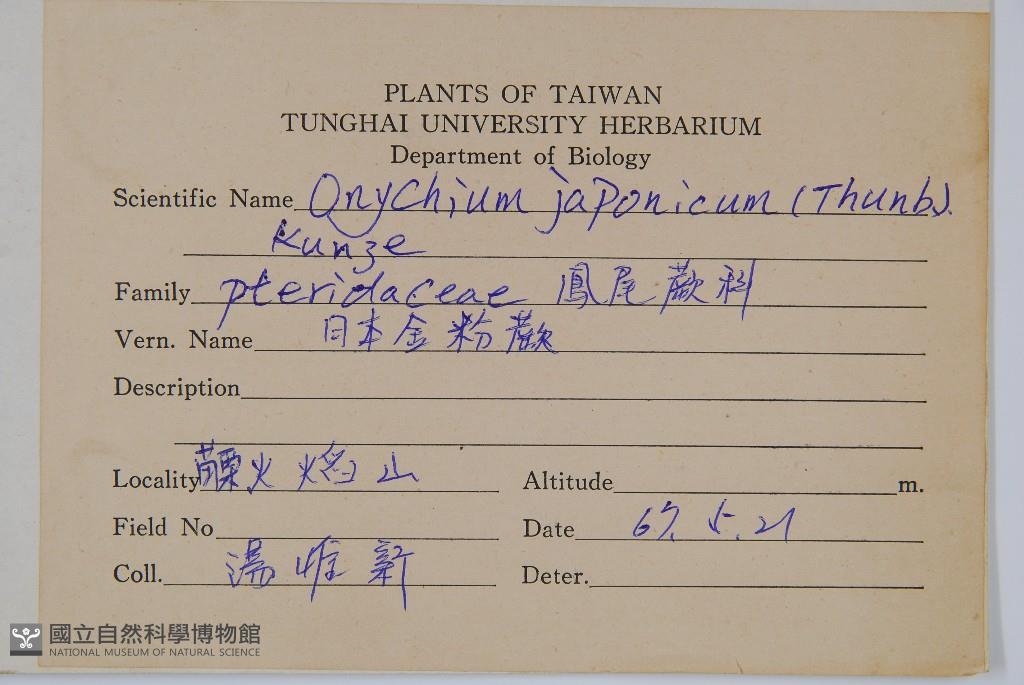 PLANTS OF TAIWAN
TUNGHAI UNIVERSITY HERBARIUM
Department of Biology
Scientific Name Onychium japonicum (Thunb).
Kunze
Family pteridaceae 鳳尾蕨科
Vern. Name 日本金粉蕨
Description
Locality 火焰山
Altitude m.
Field No
Date 67. 5. 21
Coll. 湯惟新
Deter.
國立自然科學博物館
NATIONAL MUSEUM OF NATURAL SCIENCE